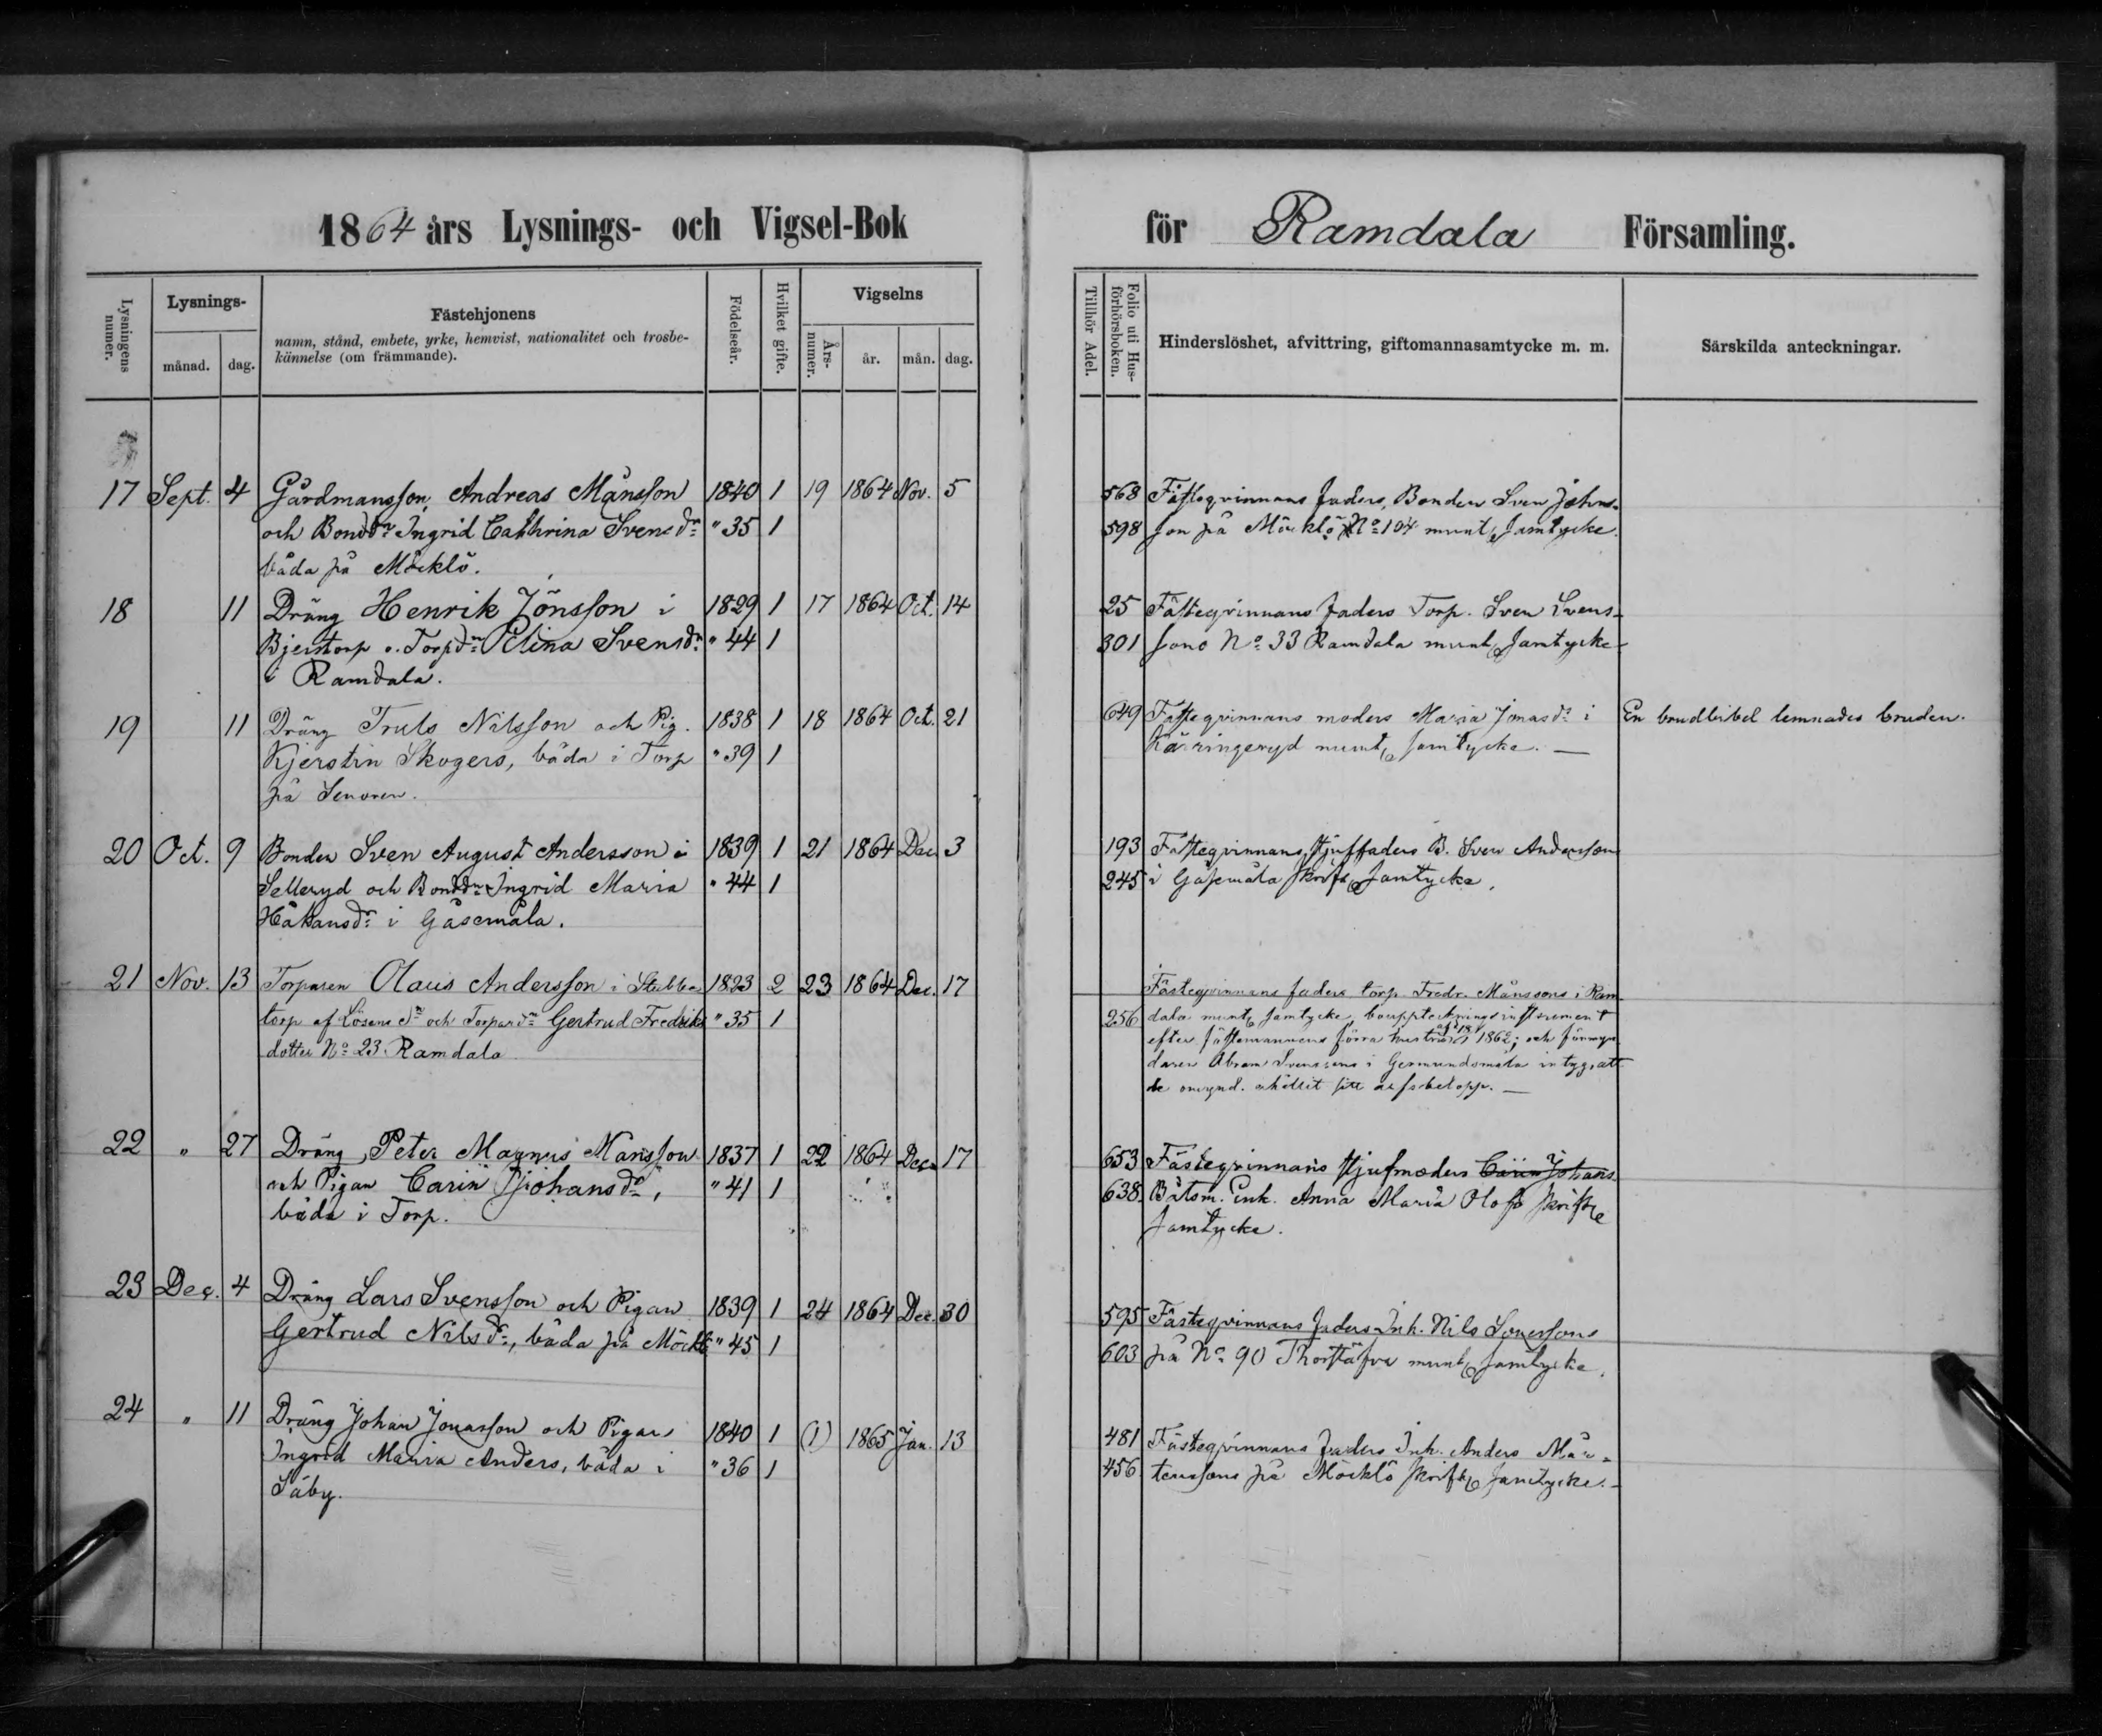 1864 års Lysnings- och Vigsel-Bok
för Ramdala Församling.
Lysningens numer.
Lysnings-
månad. dag.
Fästehjonens
namn, stånd, embete, yrke, hemvist, nationalitet och trosbe-
kännelse (om främmande).
Födelseår.
Hvilket gifte.
Vigselns
Års-numer. år. mån. dag.
Tillhör Adel.
Folio uti Hus-
förhörsboken.
Hinderslöshet, afvittring, giftomannasamtycke m. m.
Särskilda anteckningar.
17 Sept. 4 Gårdmansson, Andreas Månsson 1840 1 19 1864 Nov. 5
och Bonddr Ingrid Cathrina Svensdr " 35 1
båda på Möcklö.
18 11 Dräng Henrik Jönsson i 1829 1 17 1864 Oct. 14
Bjerstorp o. Torpdr Elina Svensdr " 44 1
i Ramdala.
19 11 Dräng Truls Nilsson och Pig. 1838 1 18 1864 Oct. 21
Kjerstin Skogers, båda i Torp " 39 1
på Senoren.
20 Oct. 9 Bonden Sven August Andersson i 1839 1 21 1864 Dec 3
Selleryd och Bonddr Ingrid Maria " 44 1
Håkansdr i Gåsemåla.
21 Nov. 13 Torparen Olaus Andersson i Stubbe 1823 2 23 1864 Dec. 17
torp af Lösens Sn och Torpardr Gertrud Fredriks " 35 1
dotter No 23 Ramdala
22 " 27 Dräng Peter Magnus Månsson 1837 1 22 1864 Dec. 17
och Pigan Carin Johansdr, " 41 1
båda i Torp.
23 Dec. 4 Dräng Lars Svensson och Pigan 1839 1 24 1864 Dec. 30
Gertrud Nilsdr, båda på Möcklö " 45 1
24 " 11 Dräng Johan Jonasson och Pigan 1840 1 (1) 1865 Jan. 13
Ingrid Maria Anders, båda i " 36 1
Säby.
568 Fästeqvinnans faders, Bonden Sven Johns-
598 son på Möcklö No 104 munt. samtycke.
25 Fästeqvinnans faders Torp. Sven Svens-
301 sons No 33 Ramdala munt. samtycke
649 Fästeqvinnans moders Maria Jonasdr i
Kärringeryd munt. samtycke. —
En brudbibel lemnades bruden.
193 Fästeqvinnans stjuffaders B. Sven Anderssons
245 i Gåsemåla skrift. samtycke.
Fästeqvinnans faders torp. Fredr. Månssons i Ram-
256 dala munt. samtycke, bouppteckningsinstrument
efter fästemannens förra hustru 1862; och förmyn-
daren Abram Svenssons i Germundsmåla intyg, att
de omynd. erhållit sitt arfsbelopp. —
653 Fästeqvinnans stjufmoders Carin Johans
638 Båtsm. Enk. Anna Maria Olofs skrift.
samtycke.
595 Fästeqvinnans faders Inh. Nils Svenssons
603 på No 90 munt. samtycke.
481 Fästeqvinnans faders Inh. Anders Mår-
456 tenssons på Möcklö skrift. samtycke.